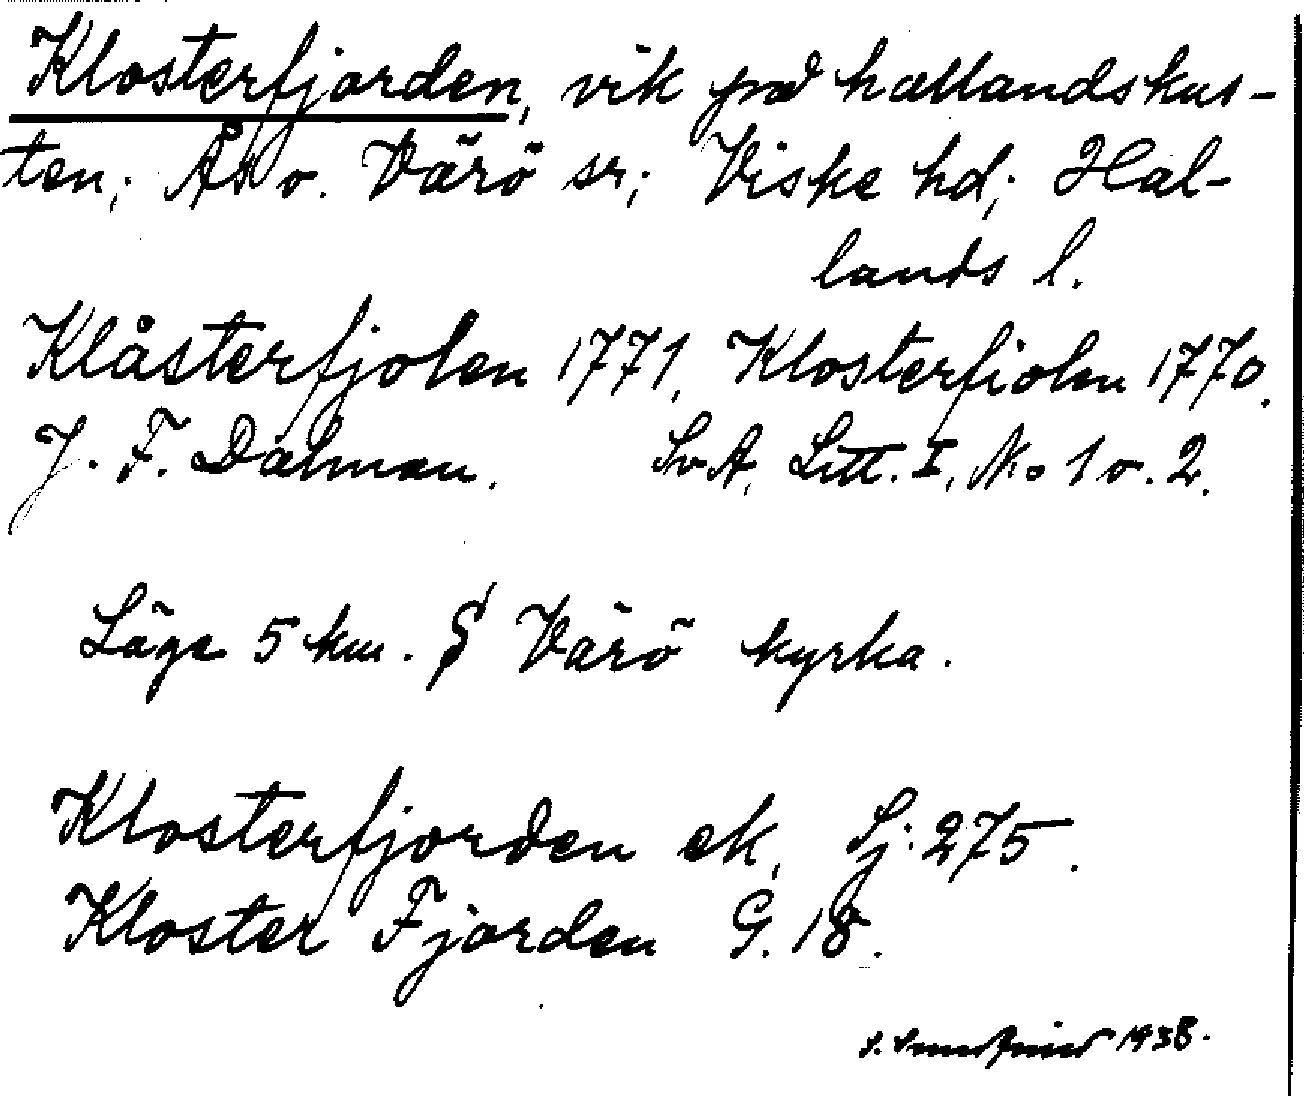 Klosterfjorden, vik på hallandskus-
ten; Ås o. Värö sr; Viske hd; Hal-
lands l.
Klåsterfjolen 1771, Klosterfiolen 1770.
J. F. Dalman. SvA, Litt. I, No 1 o. 2.
Läge 5 km. S Värö kyrka.
Klosterfjorden ek, Sj. 275.
Kloster Fjorden G. 18.
S. 1938.